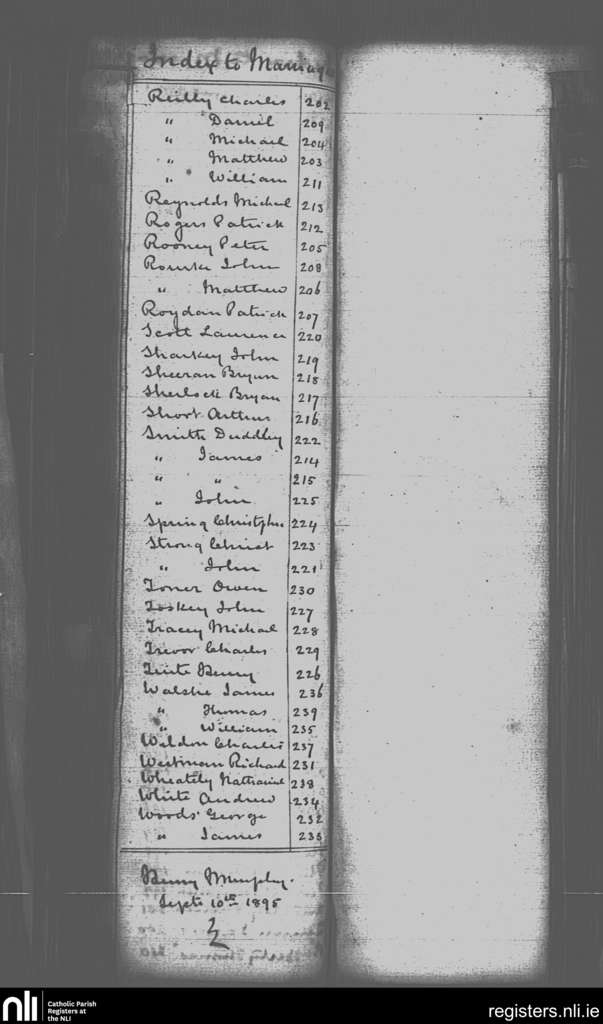 Index to Marriag
Reilly Charles 202
" Daniel 209
" Michael 204
" Matthew 203
" William 211
Reynolds Michael 213
Rogers Patrick 212
Rooney Peter 205
Rourke John 208
" Matthew 206
Roydan Patrick 207
Scott Laurence 220
Sharkey John 219
Sheeran Bryan 218
Sherlock Bryan 217
Short Arthur 216
Smith Duddley 222
" James 214
" " 215
" John 225
Spring Christphr 224
Strong Christ 223
" John 221
Toner Owen 230
Toskey John 227
Tracey Michael 228
Trevor Charles 229
Tuite Benny 226
Walshe James 236
" Thomas 239
" William 235
Weldon Charles 237
Westman Richard 231
Wheatley Nathaniel 238
White Andrew 234
Woods George 232
" James 233
Murphy.
Septr 10th 1895
nli
Catholic Parish
Registers at
the NLI
registers.nli.ie